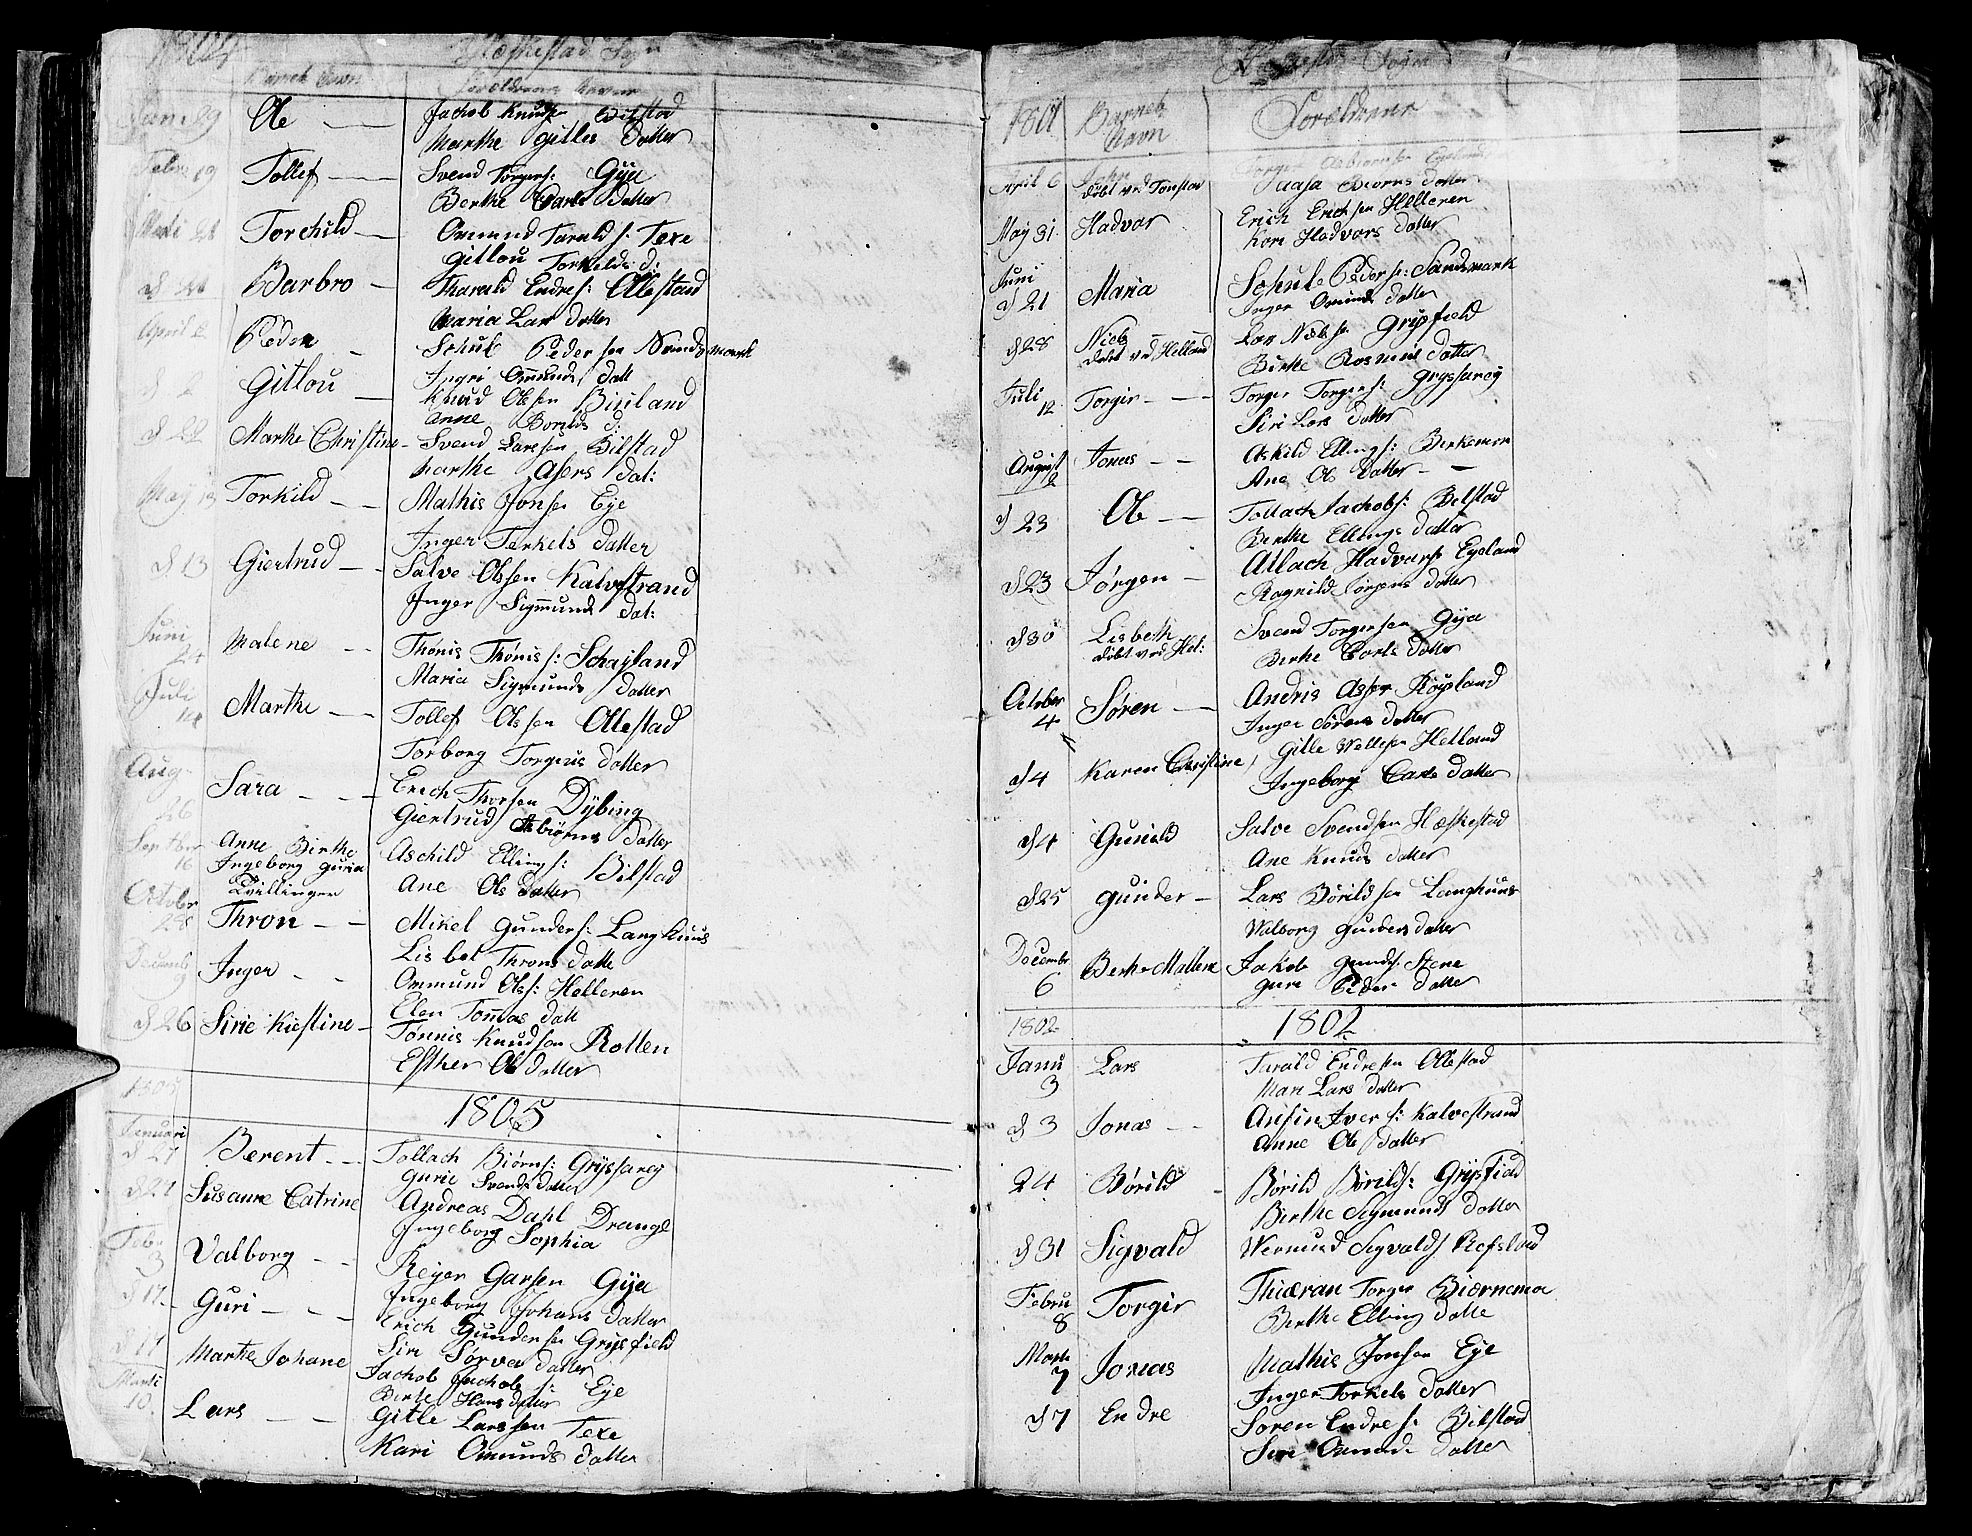 1804
Hæskestad Sogn
Barnets Navn
Forældrenes Navne
Jan: 29 Ole Jachob Knuds: Bilstad
Marthe Gitles Datter
Febr: 19 Tollef Svend Torgers: Gÿa
Berthe Carls Datter
Torchild Ommund Taralds: Texe
Gitlou Torkelds d:
Barbro Tharald Endres: Ollestad
Maria Lars datter
April 2 Peder Schule Pedersen
Ingri Ommunds datt
d 2 Gitlou Knud Olsen Biriland
Anne Borilds d:
d 22 Marthe Christine Svend Larssen Bilstad
Marthe Asers dat:
May 13 Torkild Mathis Jonsen Eye
Inger Terkels datter
d 13 Giertrud Salve Olssen Kalvestrand
Inger Sigmunds dat:
Juni 24 Malene Thönis Thönis s: Schajland
Maria Sigmunds datter
Juli 14 Marthe Tollef Olssen Ollestad
Torborg Torgius datter
Aug: 26 Sara Erich Thorsen Dÿbing
Giertrud Asbiörns datter
Septbr 16 Anne Birthe Aschild Ellings: Bilstad
Ingeborg Guria
Tvillinger
Ane Ols datter
Octobr 28 Thron Mikel Gunders: Langhuus
Lisbet Throns datte
Decemb Inger Ommund Ols: Helleren
Elen Tommas datt
d 26 Sirie Kiestine Tönnis Knudsen Rotten
Esther Ols datter
1805
Januari d 27 Berent Tollach Biörns: Grÿssareg
Gurie Svends datter
d 27 Susanne Catrine Andreas Dahl Drange
Ingeborg Sophia
Febr: 3 Valborg Reÿer Garsen Gÿa
Ingeborg Johans datter
d 17 Guri Erich Gundersen Grÿsfield
Siri Sörva datter
d 17 Marthe Johane Jachob Jachobs: Eÿe
Birte Hans datter
Marti 10 Lars Gitle Larssen Texe
Kari Omunds datter
Hæskestad Sogn
1801 Barnets Navn Forældrene
April 6 John Torger Asbiornsen Egeland
döbt ved Tonstad Aasa Biorns datter
May 31 Hadvor Erich Erichsen Helleren
Kari Hadvors datter
Juni d 21 Maria Schule Peders: Sandsmark
Inger Omunds datter
d 28 Niels Lars Nielsen Gripsfield
döbt ved Helland Birthe Rasmus datter
Juli 12 Torgir Torger Torgers: Gryssareg
Siri Lars datter
August 2 Jonas Askild Ellings: Birkemoe
Ane Ols datter
d 23 Ole Tollach Jachobs: Bilstad
Berthe Ellings datter
d 23 Jörgen Atlach Hadvars: Egeland
Ragnild Jörgens datter
d 30 Lisbeth Svend Torgersen Gÿa
döbt ved Hel: Berthe Carls datter
October 4 Sören Andris Assen Röysland
Inger Sörens datter
d 4 Karen Christine Gitle Vallesen Helland
Ingeborg Carls datter
d 4 Gunild Salve Svendsen Hæskestad
Ane Knuds datter
d 25 Gunder Lars Börildsen Langhuus
Walborg Gunders datter
Decembr 6 Berthe Mallene Jakob Gunds: Stene
Guri Peders datter
1802 1802
Janu 3 Lars Tarald Endresen Ollestad
Mari Lars datter
d 3 Jonas Anfin Ivers: Kalvestrand
Anne Ols datter
24 Börild Börild Börilds: Grÿsfield
Birthe Sigmunds datter
d 31 Sigvald Wermund Sigvalds: Refsland
Febru 8 Torgir Thiæran Torger Biærnemoe
Berthe Elling datte
Marti 7 Jonas Mathis Jonsen Eÿe
Inger Torkels datter
d 7 Endre Sören Endres: Bilstad
Siri Omunds datter